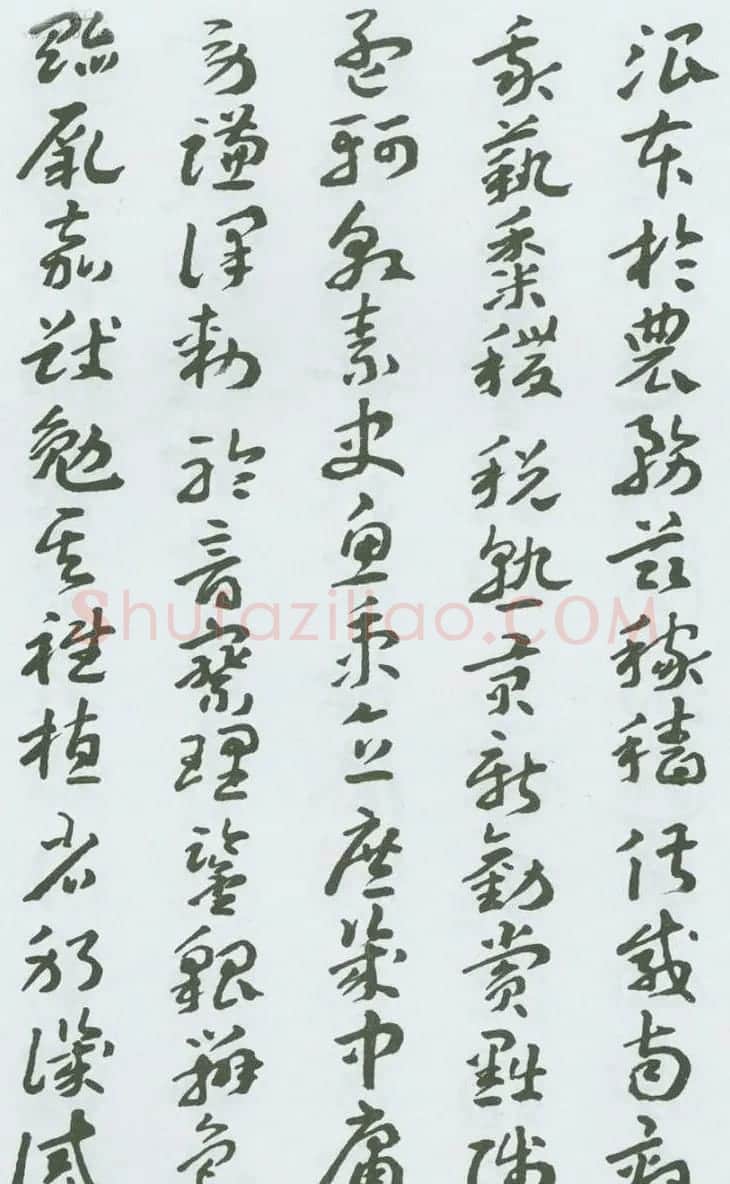 治本於農務茲稼穡俶載南畝
我藝黍稷稅熟貢新勸賞黜陟
孟軻敦素史魚秉直庶幾中庸
勞謙謹敕聆音察理鑑貌辨色
貽厥嘉猷勉其祗植省躬譏誡
Shufaziliao.COM